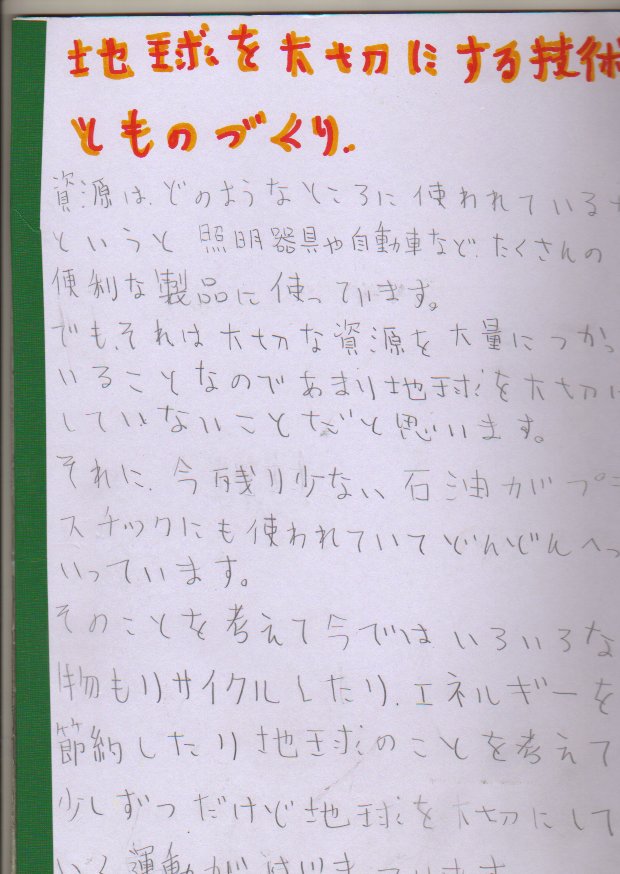 地球を大切にする技術
とものづくり.
資源は、どのようなところに使われている
というと照明器具や自動車など、たくさんの
便利な製品に使っています。
でも、それは大切な資源を大量につかっ
いることなのであまり地球を大切に
していないことだと思います。
それに、今残り少ない石油がプラ
スチックにも使われていてどんどんへっ
いっています。
そのことを考えて今ではいろいろな
物もリサイクルしたり、エネルギーを
節約したり地球のことを考えて
少しずつだけど地球を大切にして
いく運動がはじまっています